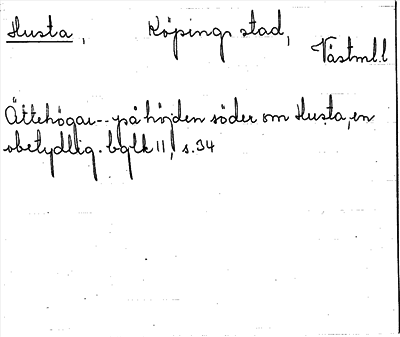 Husta, Köpings stad,
Västml.l
Ättehögar -- på höjden söder om Husta, en
obetydlig. bglk 11, s.34